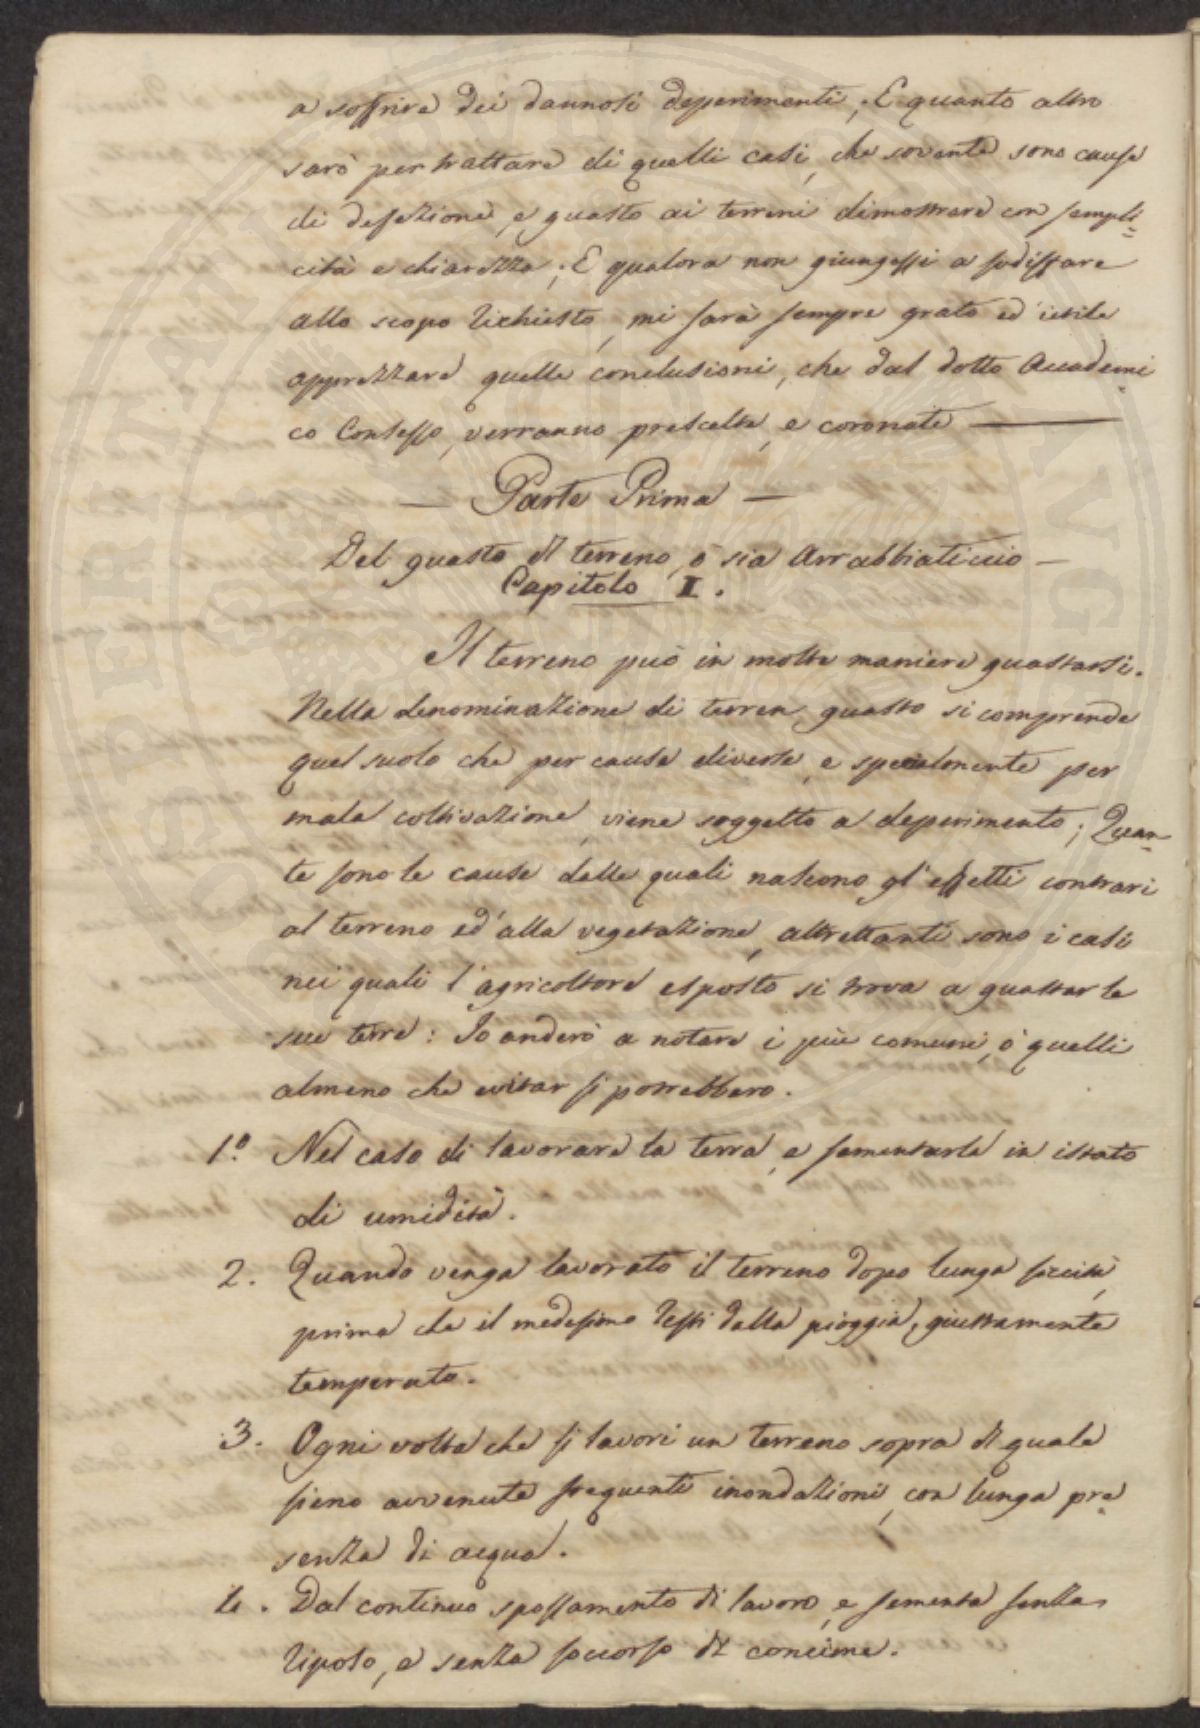 a soffrire dei dannosi deperimenti; E quanto altro
sarò per trattare di quelli casi, che sovente sono cause
di defezione, e guasto ai terreni dimostrare con sempli=
cità e chiarezza; E qualora non giungessi a sodisfare
allo scopo richiesto, mi sarà sempre grato ed' utile
apprezzare quelle conclusioni, che dal dotto Accademi=
co Consesso, verranno prescelte, e coronate —
— Parte Prima —
Del guasto di terreno, o sia Arrabbiaticcio —
Capitolo I.
Il terreno può in molte maniere guastarsi.
Nella denominazione di terren guasto si comprende
quel suolo che per cause diverse, e specialmente per
mala coltivazione, viene soggetto a deperimento; Quan=
te sono le cause dalle quali nascono gl' effetti contrari
al terreno ed' alla vegetazione, altrettanti sono i casi
nei quali l' agricoltore esposto si trova a guastar le
sue terre: Io anderò a notare i più comuni, o quelli
almeno che evitar si potrebbero.
1.° Nel caso di lavorare la terra, e sementarla in istato
di umidità.
2. Quando venga lavorato il terreno dopo lunga siccità,
prima che il medesimo resti dalla pioggia, giustamente
temperato.
3. Ogni volta che si lavori un terreno sopra di quale
sieno avvenute frequenti inondazioni, con lunga pre=
senza di acqua.
4. Dal continuo spossamento di lavoro, e sementa senza
riposo, e senza soccorso di concime.